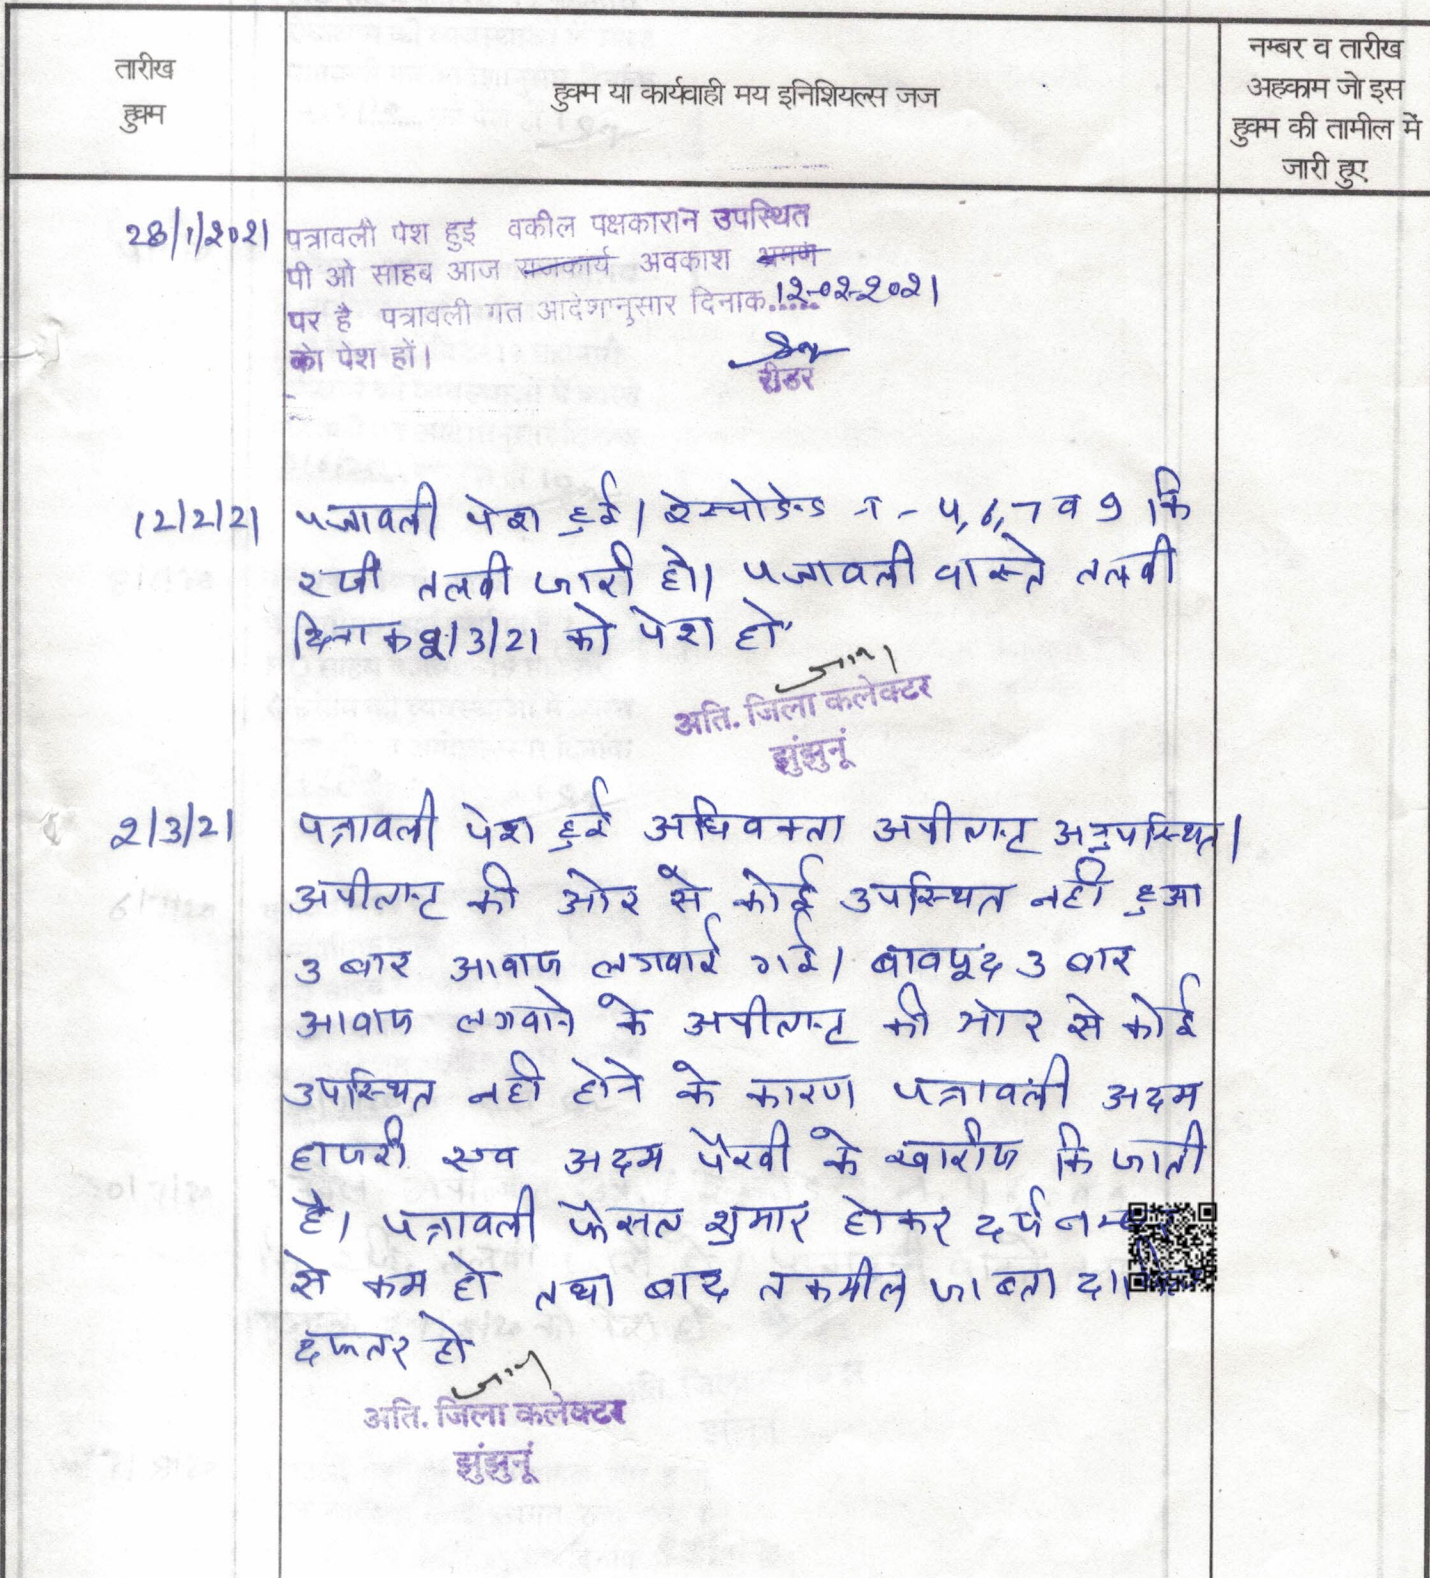 तारीख
हुक्म
हुक्म या कार्यवाही मय इनिशियल्स जज
नम्बर व तारीख
अहकाम जो इस
हुक्म की तामील में
जारी हुए
28/1/2021
पत्रावली पेश हुई वकील पक्षकारान उपस्थित
पी ओ साहब आज राजकार्य अवकाश भ्रमण
पर है पत्रावली गत आदेशानुसार दिनाक 12-02-2021
को पेश हों।
रीडर
12/2/21
पत्रावली पेश हुई। रेस्पोडेन्ट न- 4, 6, 7 व 9 कि
रजी तलवी जारी हो। पत्रावली वास्ते तलवी
दिनाक 2/3/21 को पेश हो
अति. जिला कलेक्टर
झुंझुनूं
2/3/21
पत्रावली पेश हुई अधिवक्ता अपीलान्ट अनुपस्थित।
अपीलान्ट की ओर से कोई उपस्थित नही हुआ
3 बार आवाज लगवाई गई। बावजूद 3 बार
आवाज लगवाने के अपीलान्ट की ओर से कोई
उपस्थित नही होने के कारण पत्रावली अदम
हाजरी एवं अदम पैरवी के खारीज कि जाती
है। पत्रावली फैसल शुमार होकर दर्ज नम्बर
से कम हो तथा बाद तकमील जाब्ता
दफ्तर हो
अति. जिला कलेक्टर
झुंझुनूं